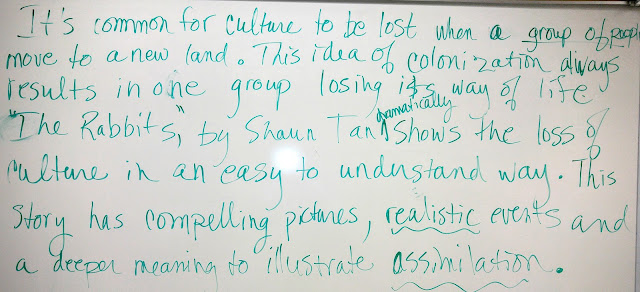 It's common for culture to be lost when a group of people
move to a new land. This idea of colonization always
results in one group losing its way of life
dramatically
"The Rabbits," by Shaun Tan ^ shows the loss of
culture in an easy to understand way. This
story has compelling pictures, realistic events and
a deeper meaning to illustrate assimilation.